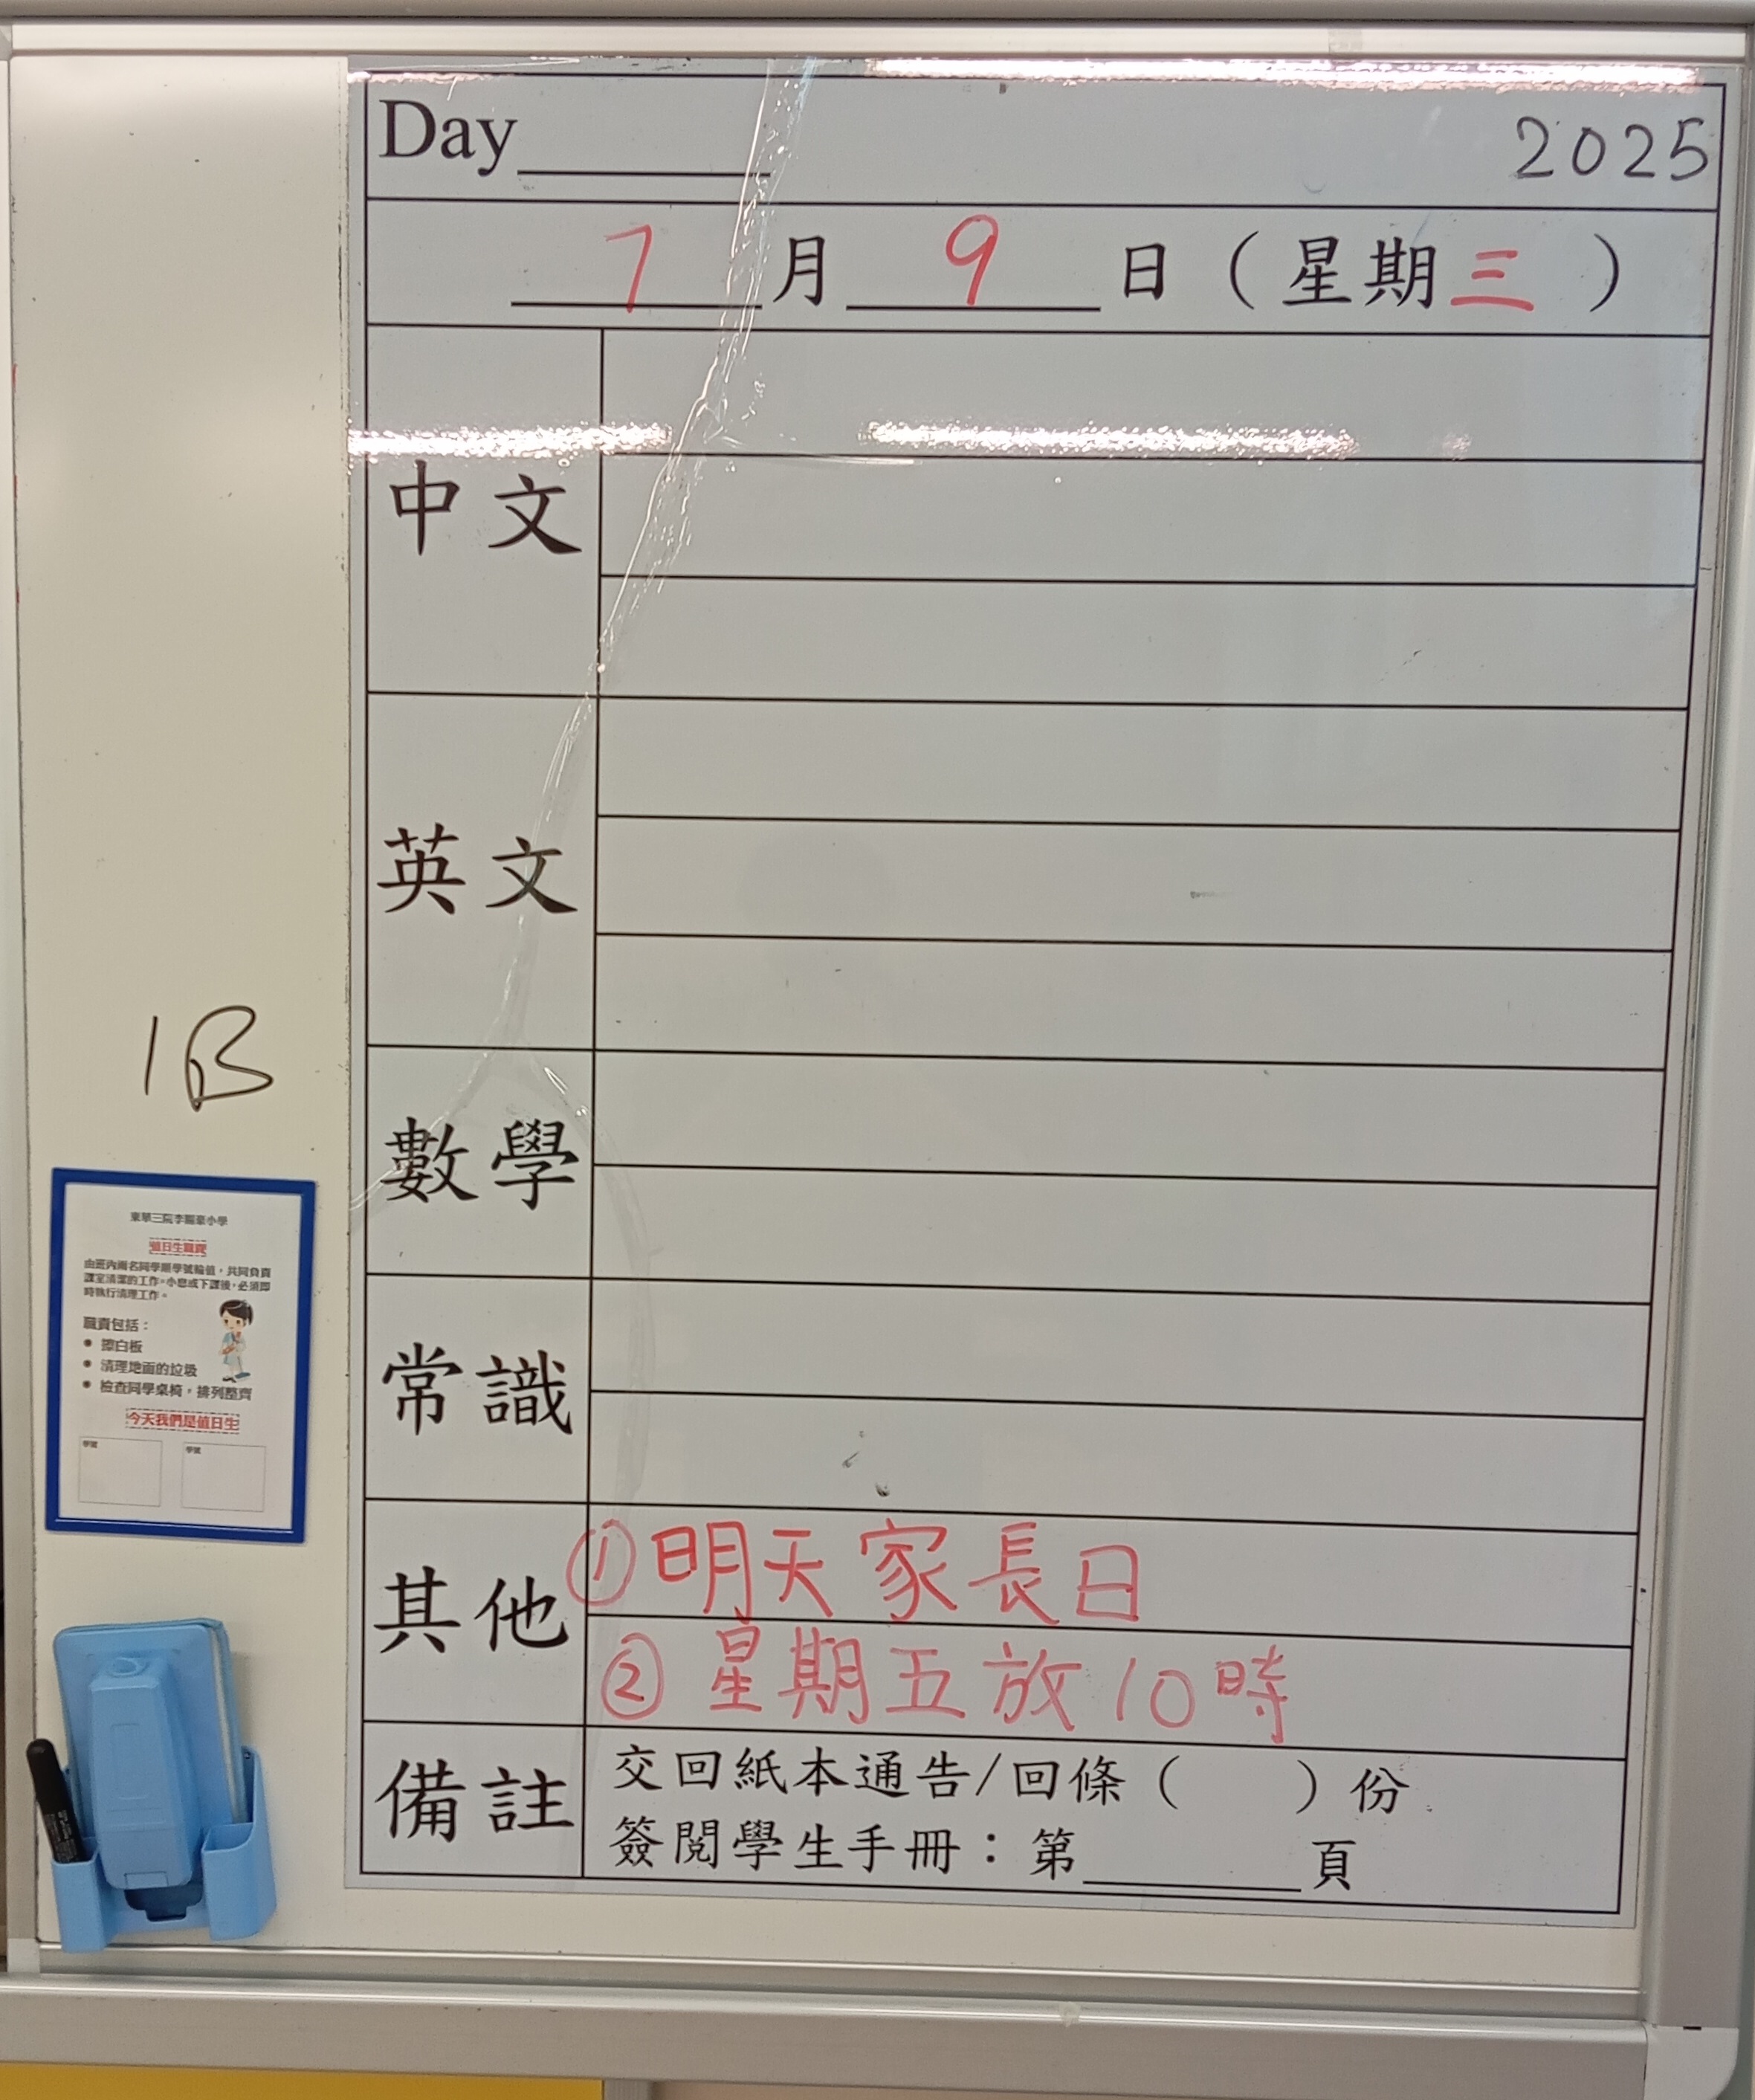 Day
2025
7月9日(星期三)
中文
英文
數學
常識
其他
①明天家長日
②星期五放10時
備註
交回紙本通告/回條( )份
簽閱學生手冊:第 頁
1B
值日生職責
由班內兩名同學順學號輪值,共同負責
課室清潔的工作。小息或下課後,必須即
時執行清理工作。
職責包括:
擦白板
清理地面的垃圾
檢查同學桌椅,排列整齊
今天我們是值日生
學號
學號